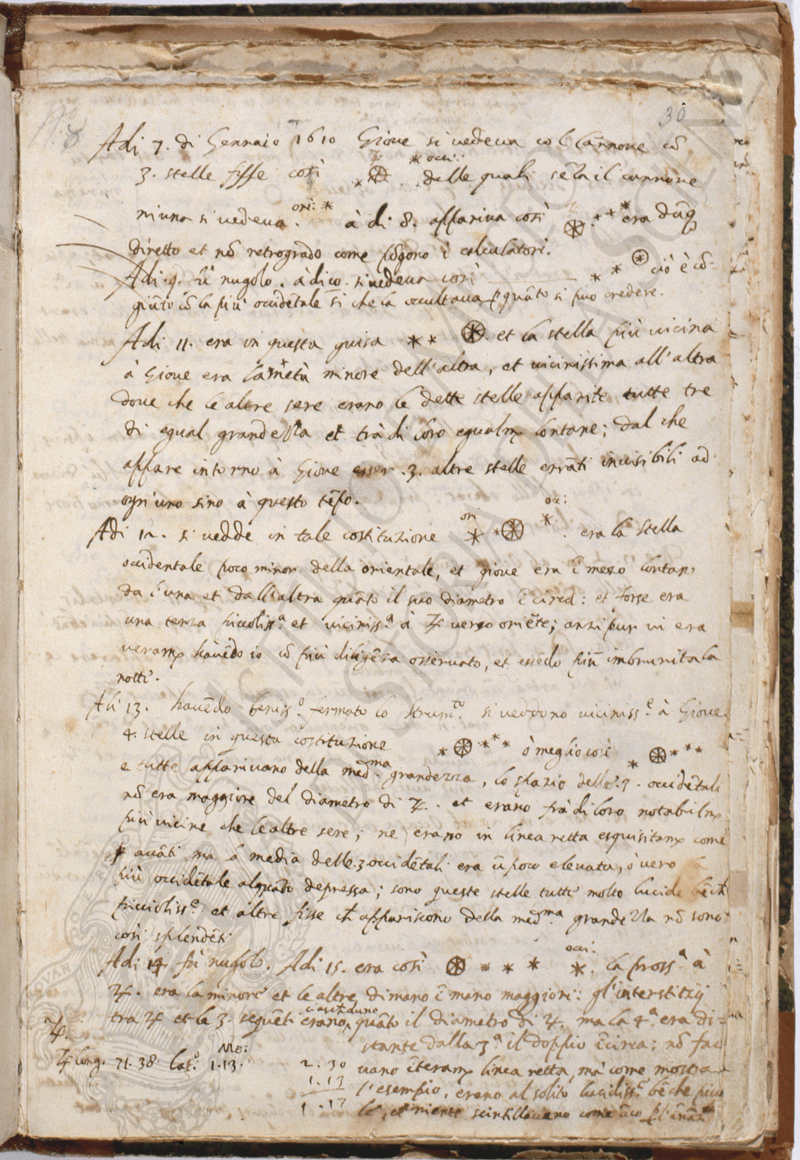 30
Adi 7. di Gennaio 1610 Giove si vedeva col Cannone cō
3. stelle fisse così delle quali sēza il cannone
occ:
niuna si vedeva. ori: à dì 8. appariva così era dūq
diretto et nō retrogrado come pōgono i calculatori.
Adi 9. fù nugolo. à dì 10. si vedeva così ciò è cō-
giūto cō la più occidētale sì che la occultava p quāto si può credere.
Adi 11. era in questa guisa et la stella più vicina
à Giove era la metà minore dell'altra, et vicinissima all'altra
dove che le altre sere erano le dette stelle apparite tutte tre
di egual grandezza et trà di loro egualm. lontane; dal che
appare intorno à Giove esser .3. altre stelle errāti invisibili ad
ogn'uno sino à questo tēpo.
Adi 12. si vedde in tale costituzione ori occ: era la stella
occidentale poco minor della orientale, et giove era ī mezo lontano
da l'una et dall'altra quāto il suo diametro ī circa: et forse era
una terza piccoliss.a et viciniss.a à ♃ verso oriēte; anzi pur vi era
veram. havēdo io cō più diligēza osservato, et essēdo più imbrunita la
notte.
Adi 13. havēdo beniss.o fermato lo strum.to si veddono viciniss.e à Giove
4. stelle in questa costituzione ò meglio così
e tutte apparivano della med.ma grandezza, lo spazio delle .3. occidētali
nō era maggiore del diametro di ♃. et erano frà di loro notabilm.
più vicine che le altre sere; ne erano in linea retta esquisitam. come
p avāti ma la media delle 3 occidētali era ū poco elevata, ò vero la
più occidētale alquāto depressa; sono queste stelle tutte molto lucide bēche
picciolliss.e et altre fisse che appariscono della med.ma grandezza nō sono
così splendēti.
Adi 14. fù nugolo. Adi 15. era così occ: la pross.a à
♃. era la minore et le altre di mano ī mano maggiori: gl'interstizij
tra ♃ et le 3. seguēti erano, ciascheduno quāto il diametro di ♃. ma la 4.a era di-
stante dalla 3.a il doppio ī circa; nō fac
vano īteram. linea retta, ma come mostra
l'esempio, erano al solito lucidiss.e bēche picco
le, et niente scintillavano come āco p l'inātī
♃ long. 71. 38. lat.o 1.13. Me:
2.30
1.13
1.17